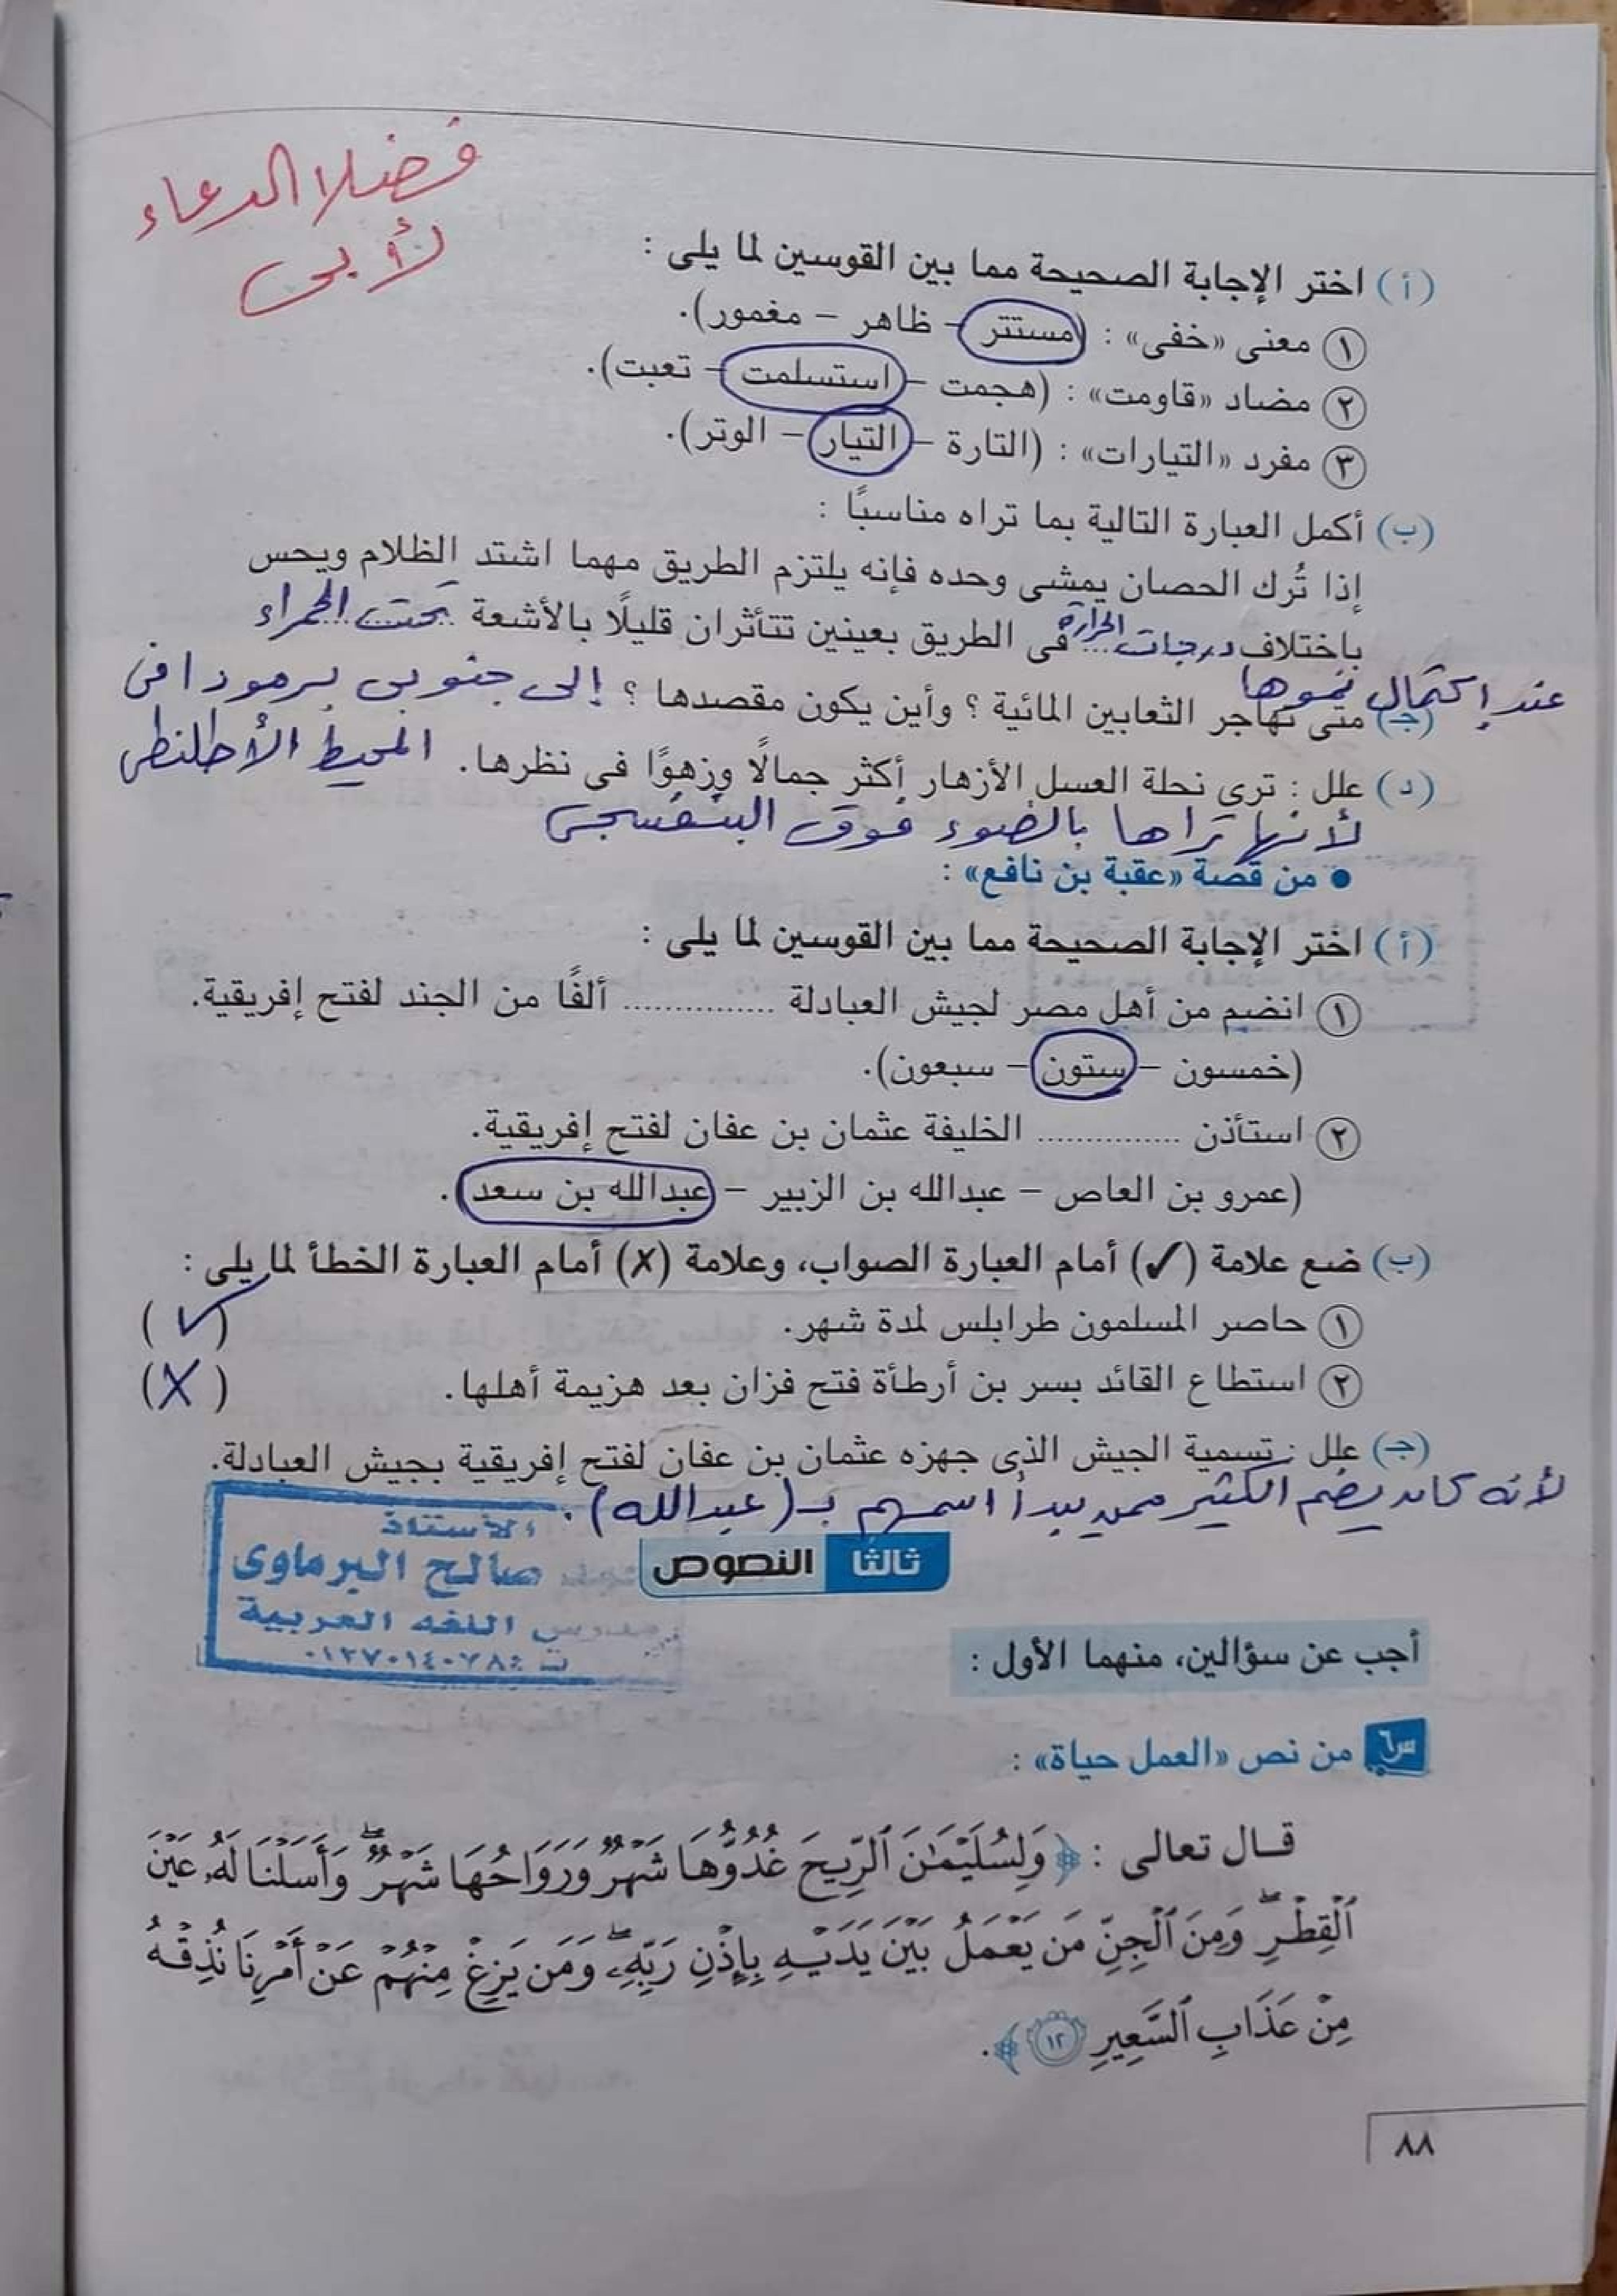 فضلا الدعاء
لأبى
(أ) اختر الإجابة الصحيحة مما بين القوسين لما يلى :
١ معنى «خفى» : (مستتر – ظاهر – مغمور).
٢ مضاد «قاومت» : (هجمت – استسلمت – تعبت).
٣ مفرد «التيارات» : (التارة – التيار – الوتر).
(ب) أكمل العبارة التالية بما تراه مناسبًا :
إذا تُرك الحصان يمشى وحده فإنه يلتزم الطريق مهما اشتد الظلام ويحس
باختلاف درجات الحرارة فى الطريق بعينين تتأثران قليلًا بالأشعة تحت الحمراء
عند إكتمال نموها
(جـ) متى تهاجر الثعابين المائية ؟ وأين يكون مقصدها ؟ إلى جنوبى برمودا فى
المحيط الأطلنطى
(د) علل : ترى نحلة العسل الأزهار أكثر جمالًا وزهوًا فى نظرها.
لأنها تراها بالضوء فوق البنفسجى
● من قصة «عقبة بن نافع» :
(أ) اختر الإجابة الصحيحة مما بين القوسين لما يلى :
١ انضم من أهل مصر لجيش العبادلة ............... ألفًا من الجند لفتح إفريقية.
(خمسون – ستون – سبعون).
٢ استأذن .............. الخليفة عثمان بن عفان لفتح إفريقية.
(عمرو بن العاص – عبدالله بن الزبير – عبدالله بن سعد).
(ب) ضع علامة (✓) أمام العبارة الصواب، وعلامة (✗) أمام العبارة الخطأ لما يلى :
١ حاصر المسلمون طرابلس لمدة شهر. (✓)
٢ استطاع القائد بسر بن أرطأة فتح فزان بعد هزيمة أهلها. (✗)
(جـ) علل : تسمية الجيش الذى جهزه عثمان بن عفان لفتح إفريقية بجيش العبادلة.
لأنه كان يضم الكثير ممن يبدأ اسمهم بـ (عبدالله).
الأستاذ
صالح البرماوى
مدرس اللغه العربية
ت : ٠١٢٧٠١٤٠٧٨
ثالثا النصوص
أجب عن سؤالين، منهما الأول :
س٦ من نص «العمل حياة» :
قال تعالى : ﴿ وَلِسُلَيْمَـٰنَ ٱلرِّيحَ غُدُوُّهَا شَهْرٌ وَرَوَاحُهَا شَهْرٌ ۖ وَأَسَلْنَا لَهُۥ عَيْنَ
ٱلْقِطْرِ ۖ وَمِنَ ٱلْجِنِّ مَن يَعْمَلُ بَيْنَ يَدَيْهِ بِإِذْنِ رَبِّهِۦ ۖ وَمَن يَزِغْ مِنْهُمْ عَنْ أَمْرِنَا نُذِقْهُ
مِنْ عَذَابِ ٱلسَّعِيرِ ١٢ ﴾.
٨٨